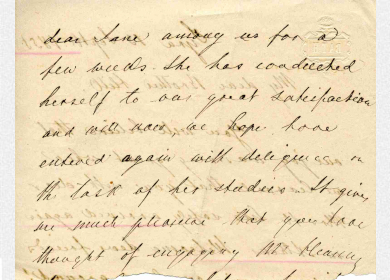 dear Jane among us for a
few weeks. She has conducted
herself to our great satisfaction
and will now we hope have
entered again with diligence on
the task of her studies. It gives
me much pleasure that you have
thought of engaging Mr